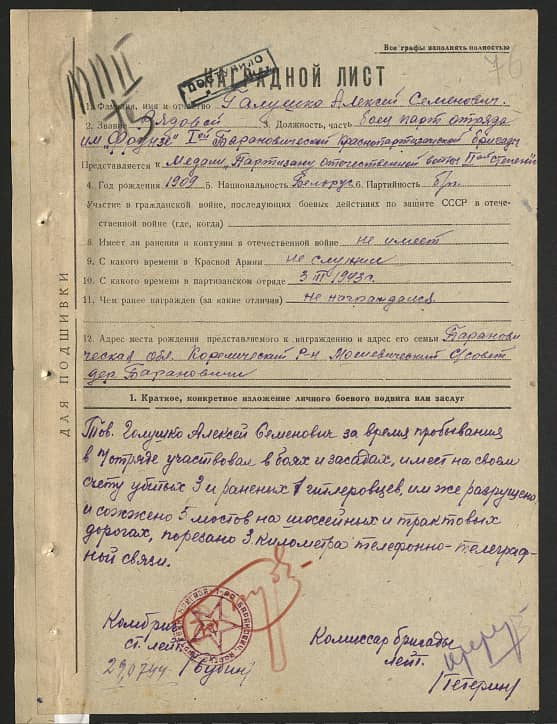 Все графы заполнять полностью
76
ПОСТУПИЛО
НАГРАДНОЙ ЛИСТ
1. Фамилия, имя и отчество Галушко Алексей Семенович.
2. Звание Рядовой 3. Должность, часть боец парт отряда
им "Фрунзе" I ой Барановической Краснопартизанской бригады
Представляется к Медали "Партизану отечественной войны II ой степени"
4. Год рождения 1909 5. Национальность Белорус 6. Партийность б/п.
Участие в гражданской войне, последующих боевых действиях по защите СССР в отече-
ственной войне (где, когда)
8. Имеет ли ранения и контузии в отечественной войне не имеет
9. С какого времени в Красной Армии не служил
10. С какого времени в партизанском отряде 3 III 1943 г.
11. Чем ранее награжден (за какие отличия) не награждался
12. Адрес места рождения представляемого к награждению и адрес его семьи Баранови
ческая обл. Кореличский р-н с/совет
дер. Барановичи
ДЛЯ ПОДШИВКИ
1. Краткое, конкретное изложение личного боевого подвига или заслуг
Тов. Голушко Алексей Семенович за время пробывания
в отряде участвовал в боях и засадах, имеет на своем
счету убитых 3 и раненых 1 гитлеровцев, им же разрушено
и сожжено 5 мостов на шоссейных и трактовых
дорогах, порезано 3 километра телефонно-телеграф-
ной связи.
Комбриг
ст. лейт.
29.07.44 /Бубин/
Комиссар бригады
лейт.
/Гетерин/